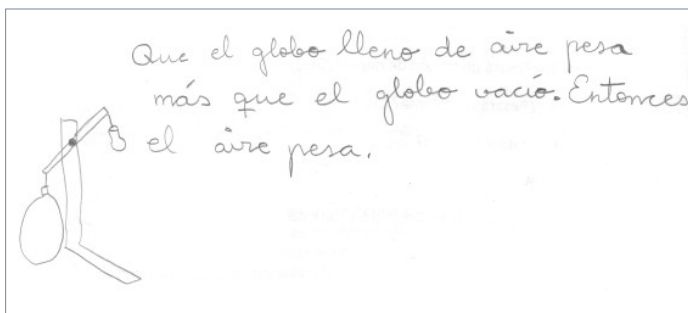 Que el globo lleno de aire pesa
más que el globo vacío. Entonces
el aire pesa.